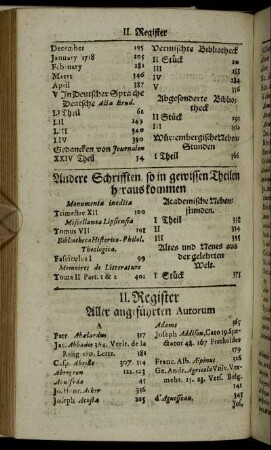 II. Register
December 195
January 1718 205
February 281
Martt 346
April 387
V In Deutscher Sprache
Deutsche Acta Erud.
L Theil 62
LII 249
LIII 340
LIV 390
Gedancken von Journalen
XXIV Theil 54
Vermischte Bibliotheck
II Stück 20
III 188
IV 284
V
Abgesonderte Bibliotheck
II Stück 191
III 390
Würtembergische Neben-
Stunden
I Theil 366
Andere Schrifften so in gewissen Theilen
herauskommen
Monumenta inedita
Trimestre XII 100
Miscellanea Lipsiensia
Tomus VII 198
Bibliotheca Historico-Philol.
Theologica.
Fasciculus I 99
Memoires de Litterature
Tome II Part. 1 & 2 401
Academische Neben-
stunden.
I Theil 338
II 315
III 385
Altes und Neues aus
der gelehrten
Welt.
I Stück 375
II. Register
Aller angeführten Autorum
A
Petr. Abalardus 317
Jac. Abbadie 264. Verit. de la
Relig. 280. Lettr. 381
Casp. Abeille 307. 314
Abergron 122.123
Abu seda 45
Jo. Henr. Acker 336
Joseph Acosta 205
Adamz 365
Joseph Addison, Cato 19. Spectator 48. 167 Freeholder 179
Franc. Alb. Aepinus 316
Ge. Andr. Agricola Univ. Vermehr. 21. 28. Vers. Belg. 141
d'Aguesseau, 345
Jos.